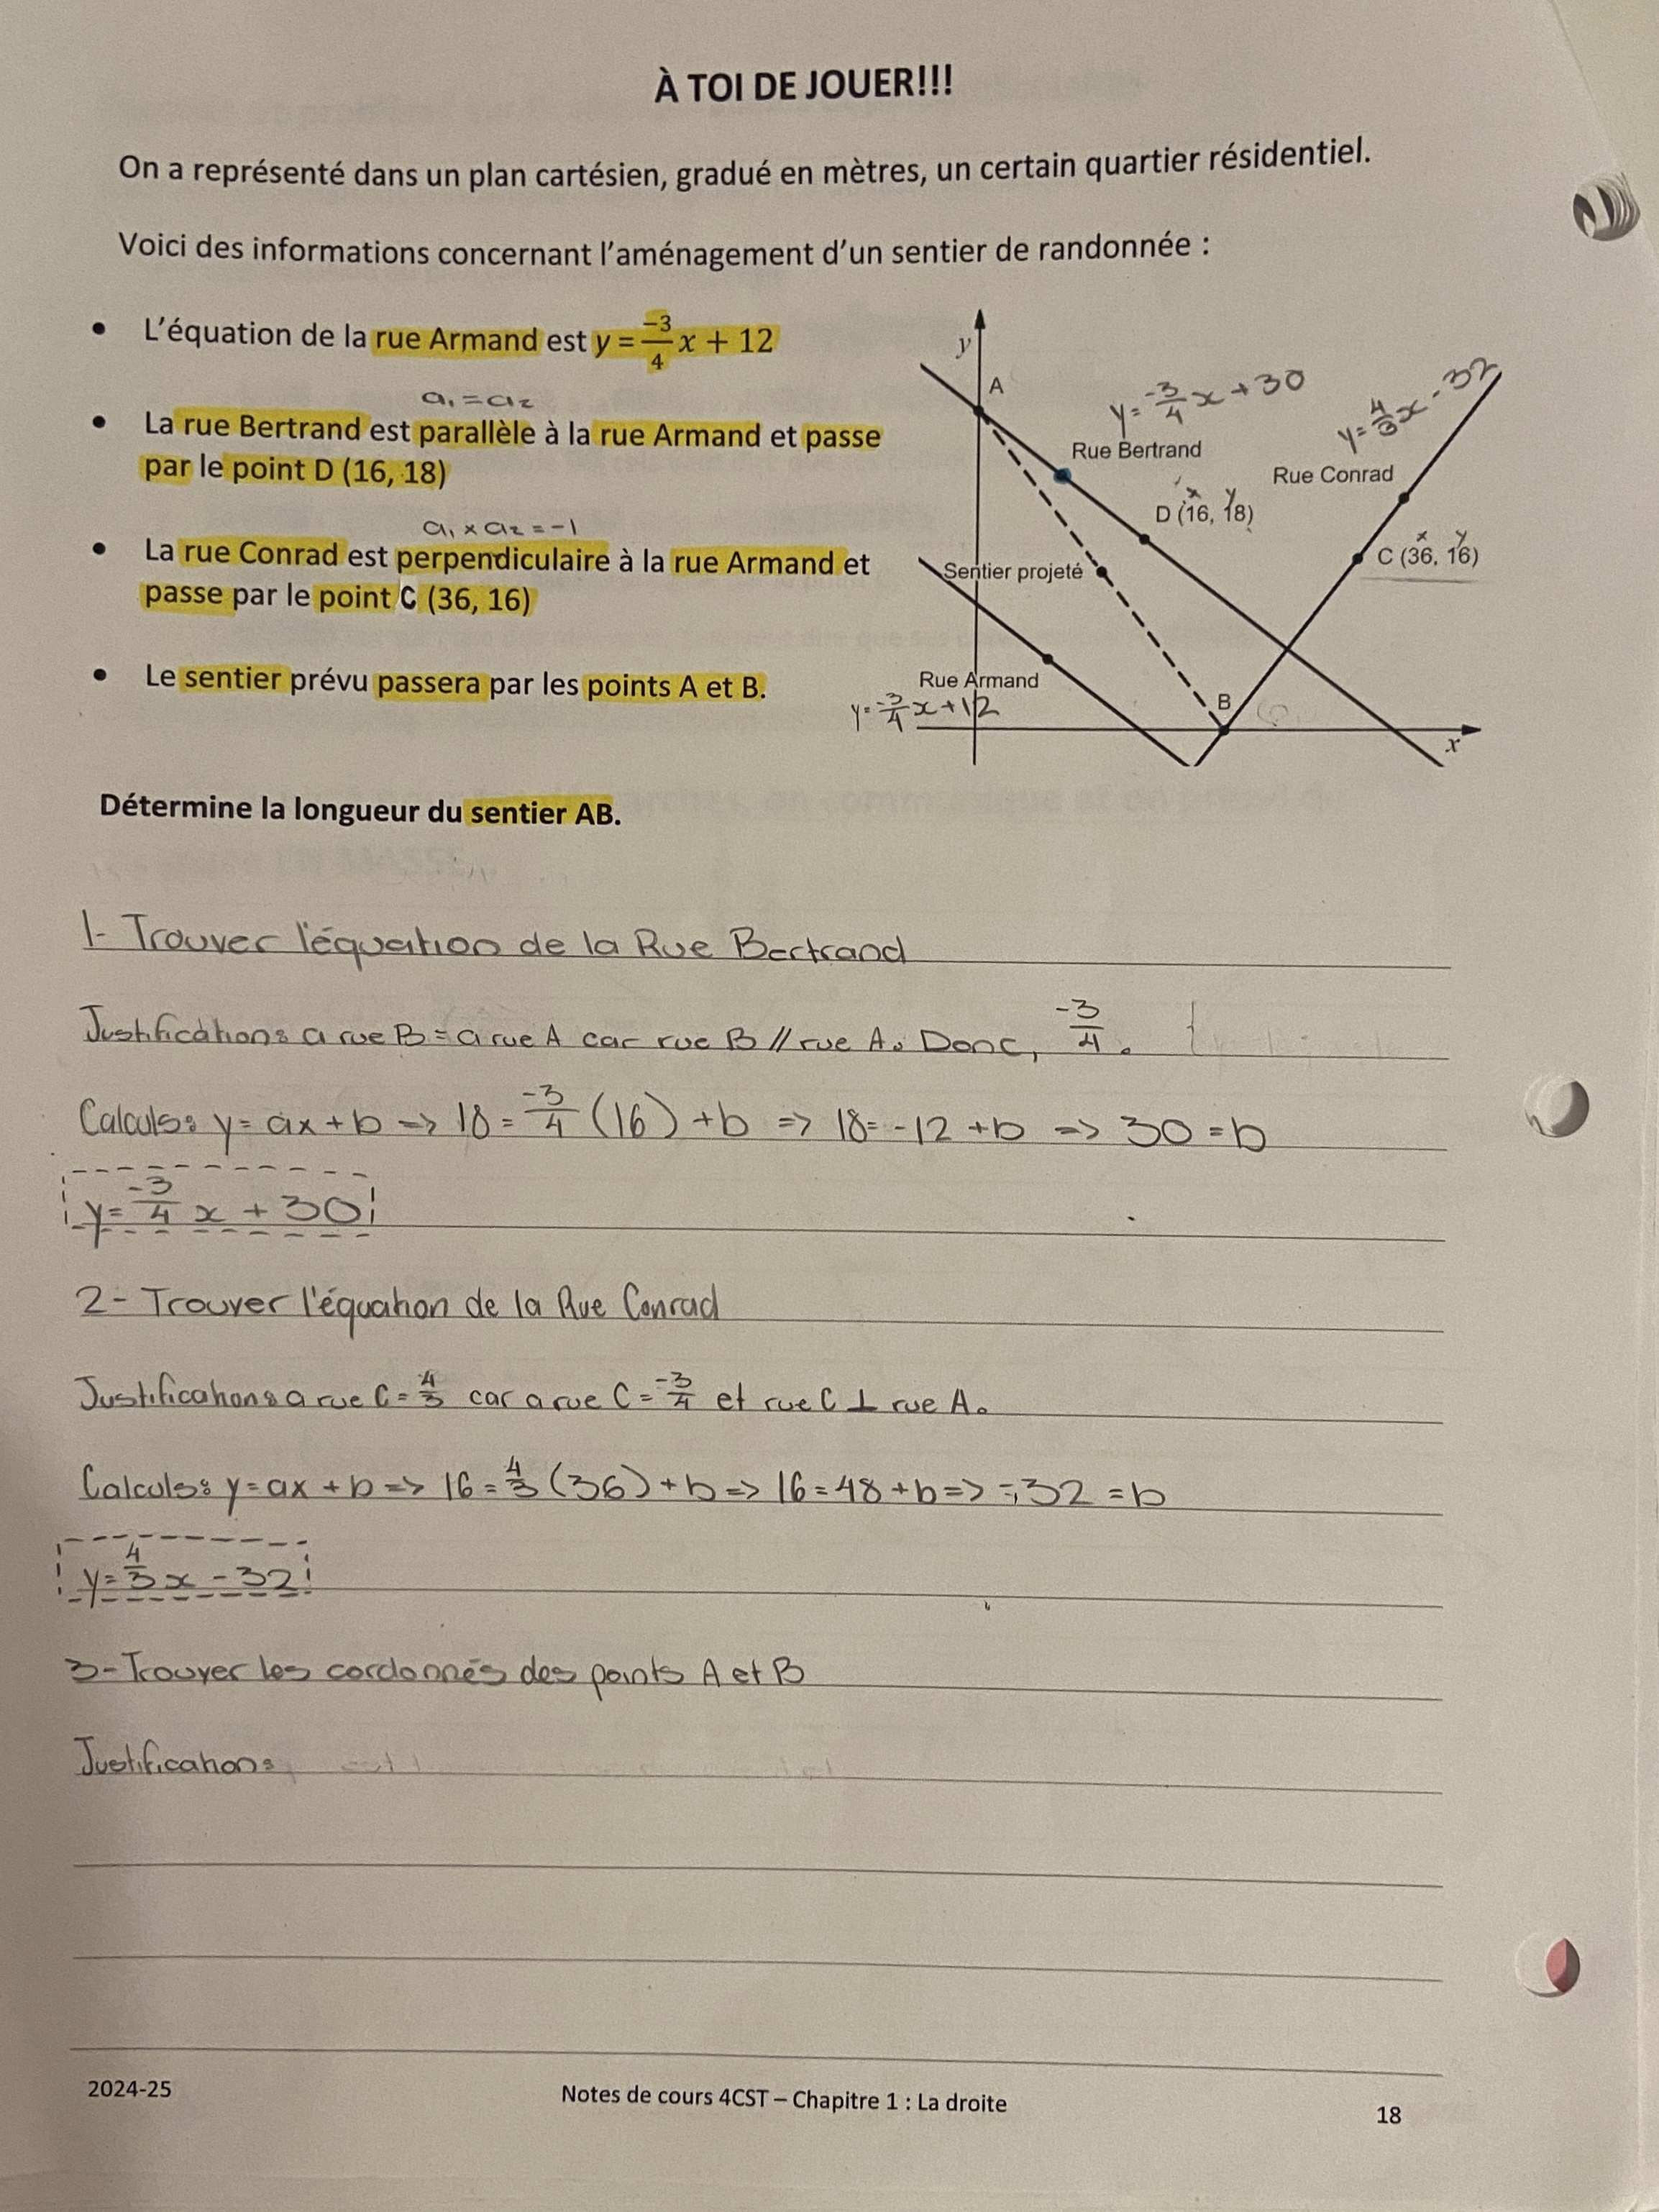 À TOI DE JOUER!!!
On a représenté dans un plan cartésien, gradué en mètres, un certain quartier résidentiel.
Voici des informations concernant l'aménagement d'un sentier de randonnée :
• L'équation de la rue Armand est y = -3/4 x + 12
a₁ = a₂
• La rue Bertrand est parallèle à la rue Armand et passe
par le point D (16, 18)
a₁ × a₂ = -1
• La rue Conrad est perpendiculaire à la rue Armand et
passe par le point C (36, 16)
• Le sentier prévu passera par les points A et B.
y
A
y = -3/4 x + 30
y = 4/3 x - 32
Rue Bertrand
Rue Conrad
x y
D (16, 18)
x y
C (36, 16)
Sentier projeté
Rue Armand
y = -3/4 x + 12
B
x
Détermine la longueur du sentier AB.
1- Trouver l'équation de la Rue Bertrand
Justifications: a rue B = a rue A car rue B // rue A. Donc, -3/4.
Calculs: y = ax + b => 18 = -3/4 (16) + b => 18 = -12 + b => 30 = b
y = -3/4 x + 30
2- Trouver l'équation de la Rue Conrad
Justifications: a rue C = 4/3 car a rue C = -3/4 et rue C ⊥ rue A.
Calculs: y = ax + b => 16 = 4/3 (36) + b => 16 = 48 + b => -32 = b
y = 4/3 x - 32
3- Trouver les cordonnés des points A et B
Justifications:
2024-25
Notes de cours 4CST – Chapitre 1 : La droite
18